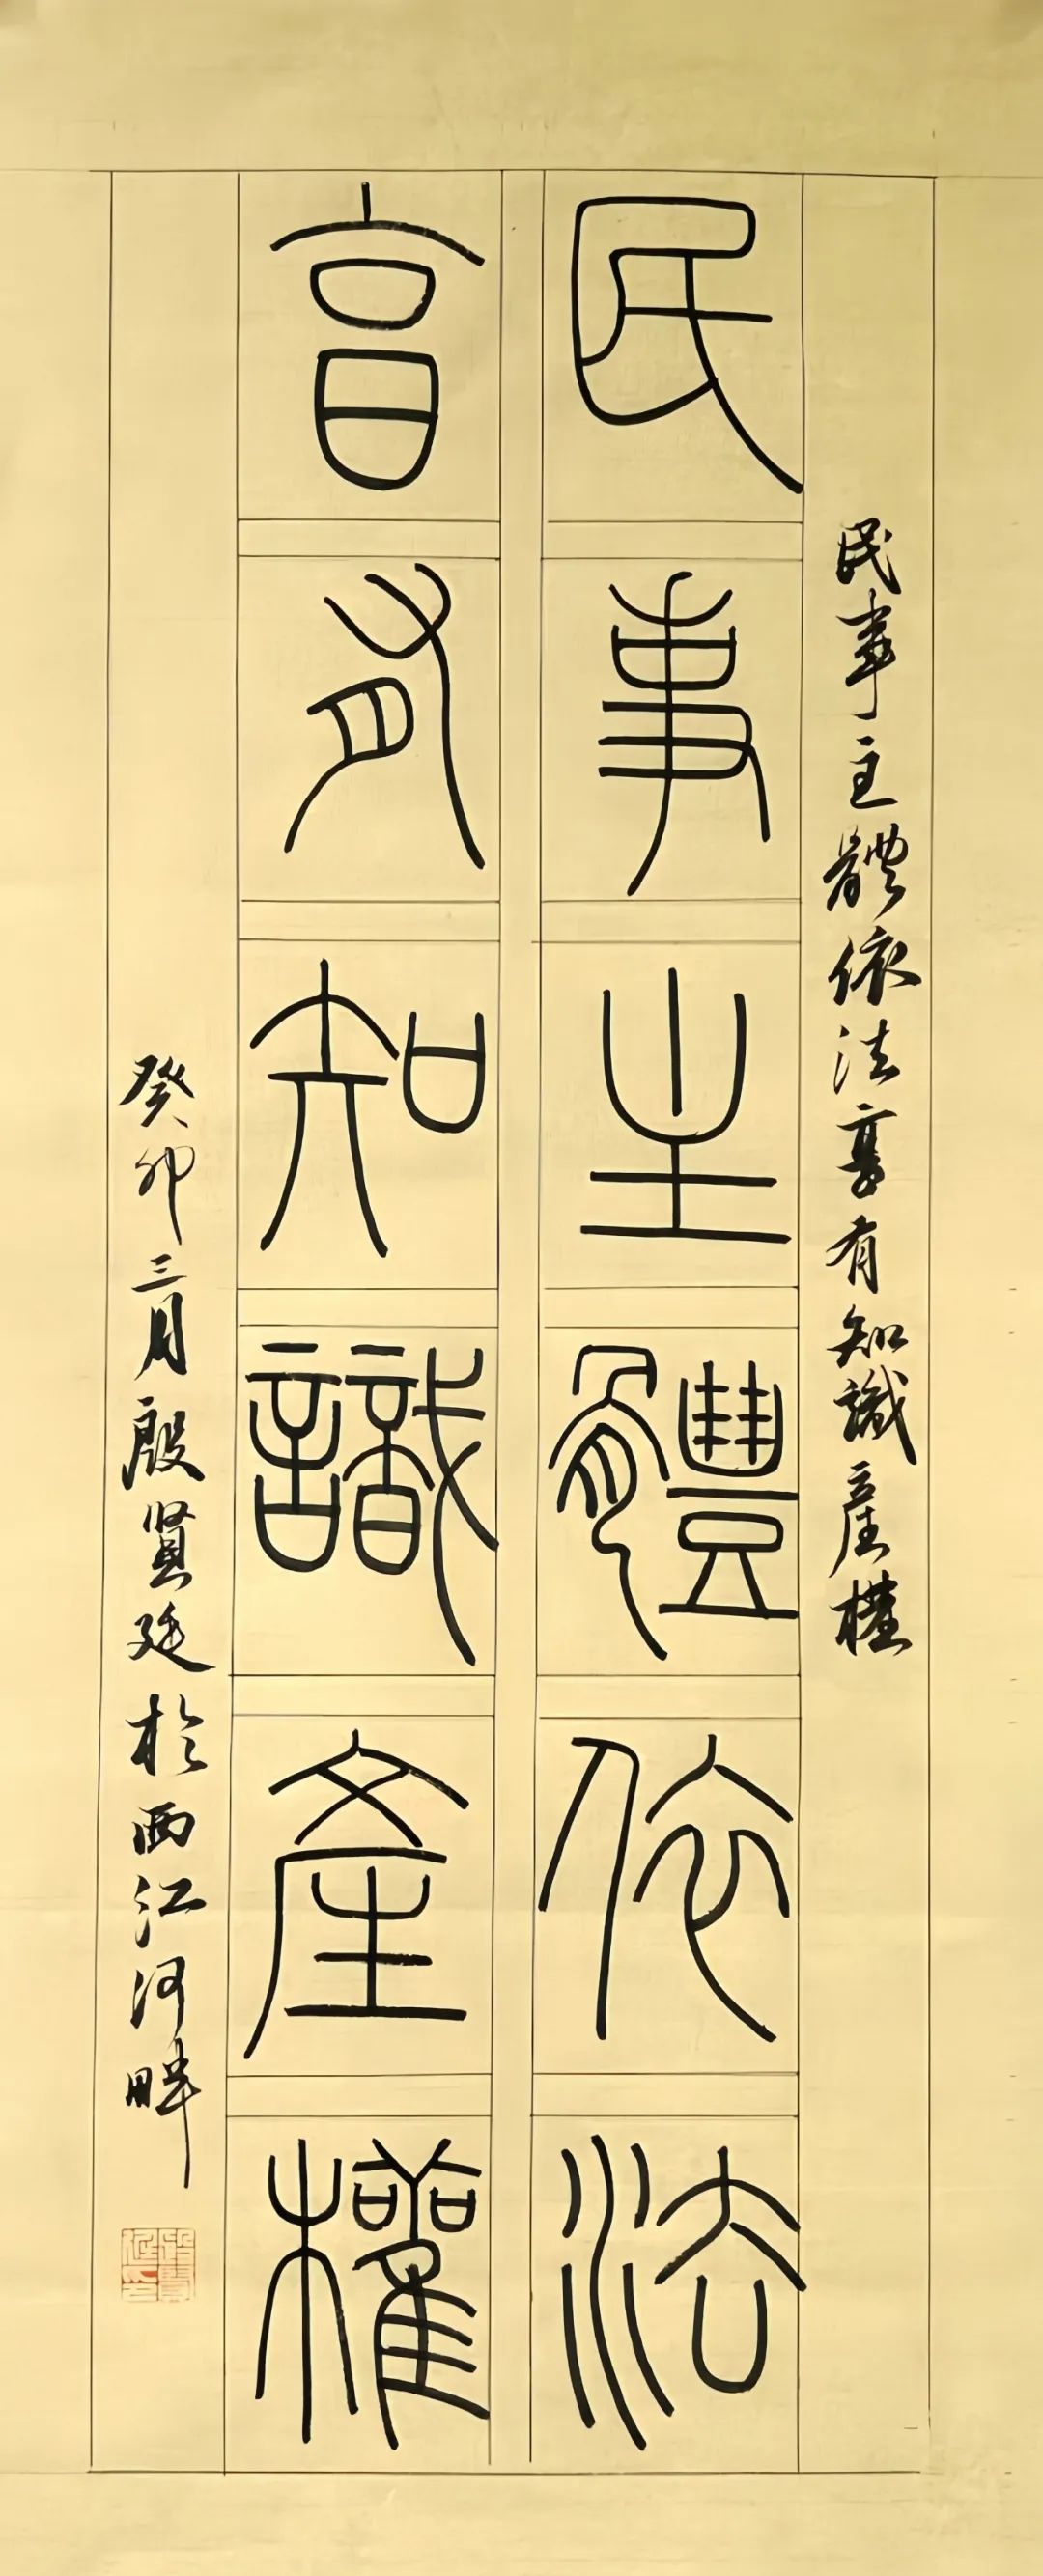 民事主體依法享有知識產權
民事主體依法
享有知識產權
癸卯三月殷賢廷於西江河畔